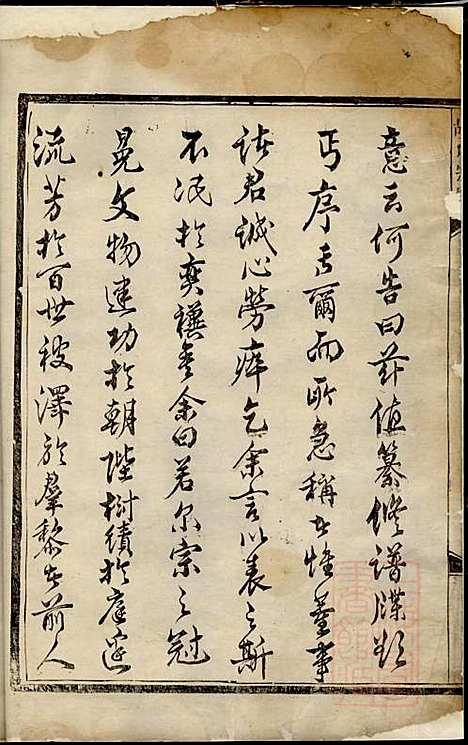 意云何告曰茲值纂修譜牒欵
丐序者爾而所急稱者惟董事
諸君誠心勞瘁乞余言以表之斯
不泯於奕禩矣余曰若尔宗之冠
冕文物建功於朝陛樹績於庭
流芳於百世被澤於羣黎者前人